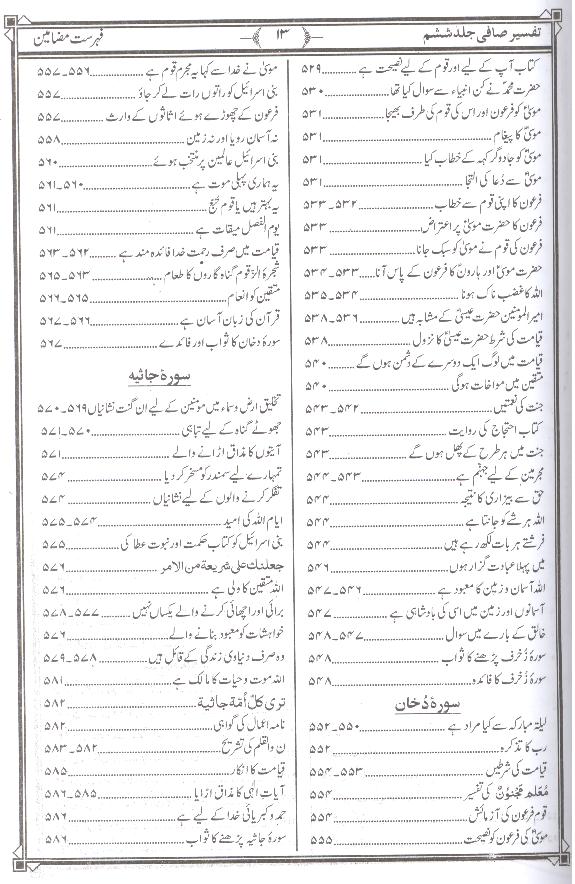 تفسیر صافی جلد ششم
۱۳
فہرست مضامین
کتاب آپ کے لیے اور قوم کے لیے نصیحت ہے ۵۲۹
حضرت محمدؐ نے کن انبیاء سے سوال کیا تھا ۵۳۰
موسیٰؑ کو فرعون اور اس کی قوم کی طرف بھیجا ۵۳۱
موسیٰؑ کا پیغام ۵۳۱
موسیٰؑ کو جادوگر کہہ کے خطاب کیا ۵۳۱
موسیٰؑ سے دُعا کی التجا ۵۳۱
فرعون کا اپنی قوم سے خطاب ۵۳۲۔۵۳۳
فرعون کا حضرت موسیٰؑ پر اعتراض ۵۳۳
فرعون کی قوم نے موسیٰؑ کو سبک جانا ۵۳۳
حضرت موسیٰؑ اور ہارونؑ کا فرعون کے پاس آنا ۵۳۳۔۵۳۴
اللہ کا غضب ناک ہونا ۵۳۴۔۵۳۵
امیر المومنینؑ حضرت عیسیٰؑ کے مشابہ ہیں ۵۳۶۔۵۳۸
قیامت کی شرط حضرت عیسیٰؑ کا نزول ۵۳۸
قیامت میں لوگ ایک دوسرے کے دشمن ہوں گے ۵۴۰
متقین میں مواخات ہوگی ۵۴۰
جنت کی نعمتیں ۵۴۲۔۵۴۳
کتاب احتجاج کی روایت ۵۴۳
جنت میں ہر طرح کے پھل ہوں گے ۵۴۳
مجرمین کے لیے جہنم ہے ۵۴۳۔۵۴۴
حق سے بیزاری کا نتیجہ ۵۴۴
اللہ ہر شے کو جانتا ہے ۵۴۴
فرشتے ہر بات لکھ رہے ہیں ۵۴۴
میں پہلا عبادت گزار ہوں ۵۴۶
اللہ آسمان و زمین کا معبود ہے ۵۴۶۔۵۴۷
آسمانوں اور زمین میں اسی کی بادشاہی ہے ۵۴۷
خالق کے بارے میں سوال ۵۴۷۔۵۴۸
سورۂ زُخرف پڑھنے کا ثواب ۵۴۸
سورۂ زُخرف کا فائدہ ۵۴۸
سورۂ دُخان
لیلۃ مبارکہ سے کیا مراد ہے ۵۵۰۔۵۵۲
رب کا تذکرہ ۵۵۲
قیامت کی شرطیں ۵۵۳۔۵۵۴
مُعَلَّم مَجْنُوْنٌ کی تفسیر ۵۵۴
قوم فرعون کی آزمائش ۵۵۴
موسیٰؑ کی فرعون کو نصیحت ۵۵۵
موسیٰؑ نے خدا سے کہا یہ مجرم قوم ہے ۵۵۶۔۵۵۷
بنی اسرائیل کو راتوں رات لے کر جاؤ ۵۵۷
فرعون کے چھوڑے ہوئے اثاثوں کے وارث ۵۵۷
نہ آسمان رویا اور نہ زمین ۵۵۸
بنی اسرائیل عالمین پر منتخب ہوئے ۵۶۰
یہ ہماری پہلی موت ہے ۵۶۰۔۵۶۱
یہ بہتر ہیں یا قوم تبع ۵۶۱
یوم الفصل میقات ہے ۵۶۱
قیامت میں صرف رحمت خدا فائدہ مند ہے ۵۶۲۔۵۶۳
شجرۃ الزقوم گناہ گاروں کا طعام ۵۶۳۔۵۶۵
متقین کو انعام ۵۶۵۔۵۶۶
قرآن کی زبان آسان ہے ۵۶۶۔۵۶۷
سورۂ دخان کا ثواب اور فائدے ۵۶۷
سورۂ جاثیہ
تخلیق ارض و سماء میں مومنین کے لیے ان گنت نشانیاں ۵۶۹۔۵۷۰
جھوٹے گناہ کے لیے تباہی ۵۷۰۔۵۷۱
آیتوں کا مذاق اڑانے والے ۵۷۱
تمہارے لیے سمندر کو مسخر کر دیا ۵۷۴
تفکر کرنے والوں کے لیے نشانیاں ۵۷۴
ایام اللہ کی امید ۵۷۴۔۵۷۵
بنی اسرائیل کو کتاب حکمت اور نبوت عطا کی ۵۷۵
جعلنٰك علیٰ شریعة من الامر ۵۷۶
اللہ متقین کا ولی ہے ۵۷۶
برائی اور اچھائی کرنے والے یکساں نہیں ۵۷۷۔۵۷۸
خواہشات کو معبود بنانے والے ۵۷۶
وہ صرف دنیاوی زندگی کے قائل ہیں ۵۷۸۔۵۷۹
اللہ موت و حیات کا مالک ہے ۵۸۱
تریٰ کلّ اُمّة جاثیة ۵۸۲
نامہ اعمال کی گواہی ۵۸۲
ن والقلم کی تشریح ۵۸۲۔۵۸۳
قیامت کا انکار ۵۸۵
آیات الٰہی کا مذاق اڑایا ۵۸۵۔۵۸۶
حمد و کبریائی خدا کے لیے ہے ۵۸۶
سورۂ جاثیہ پڑھنے کا ثواب ۵۸۶